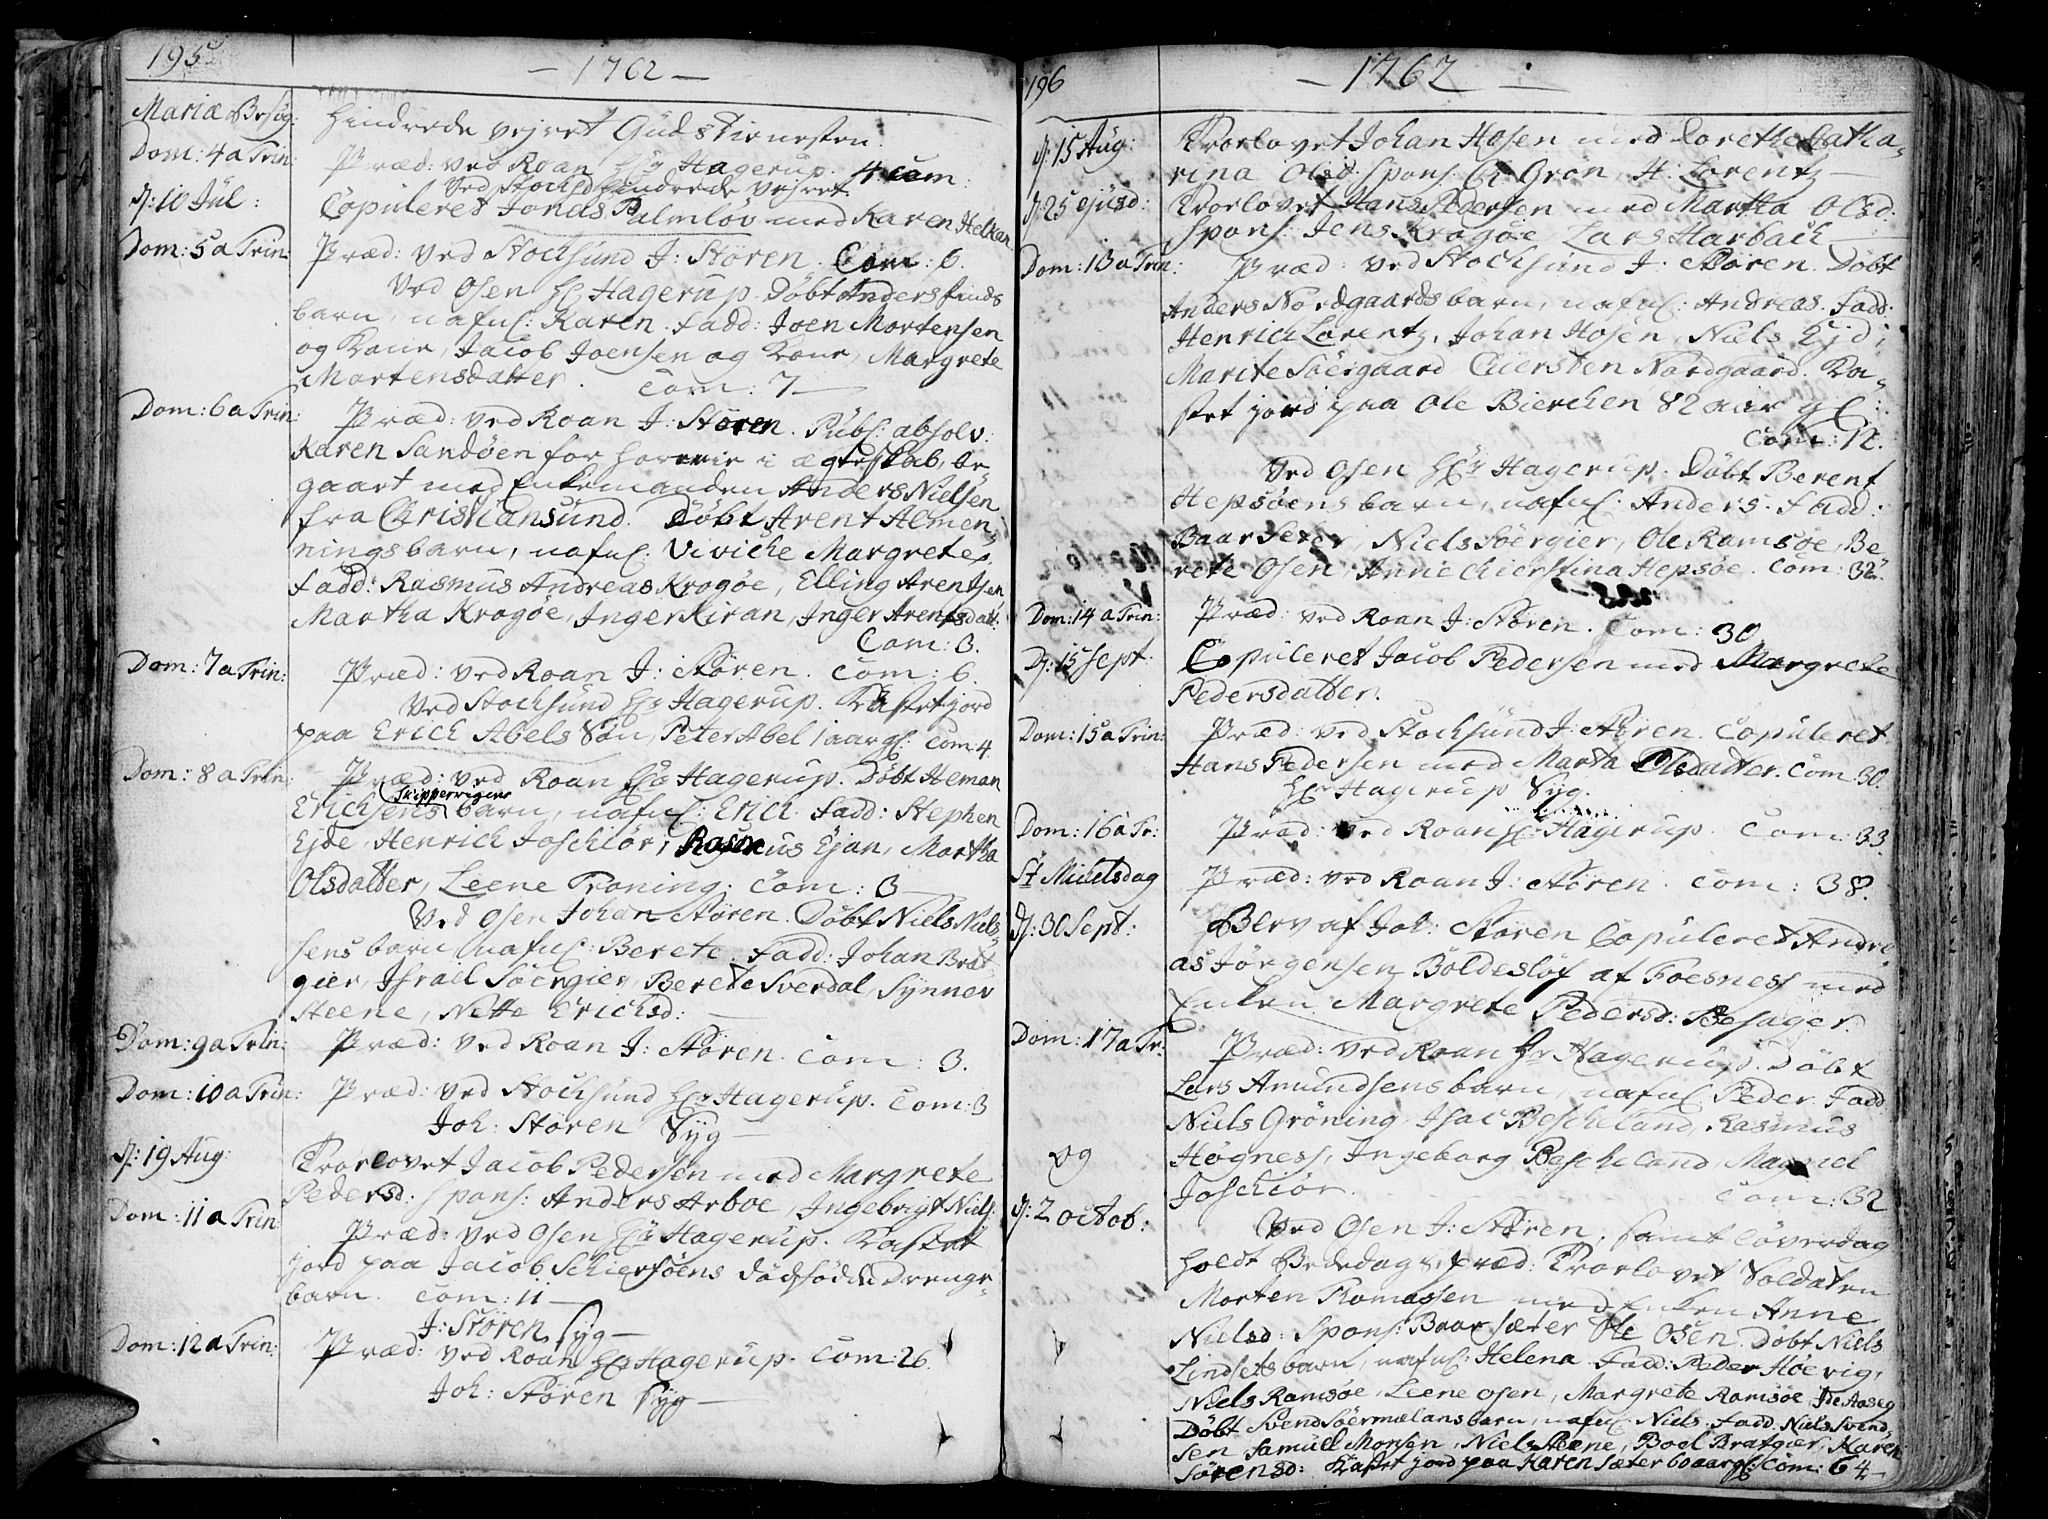 195
- 1762 -
Mariæ Besøg: hindrede vejret Guds tienesten.
Dom: 4 a Trin: Præd: ved Roan Hr Hagerup. 4 Com:
Ved Stochs: hindrede vejret.
d: 10 Jul: Copuleret Jonas Palmløv med Karen Helken
Dom: 5 a Trin: Præd: ved Stochsund J: Stören. Com: 6.
Ved Osen Hr Hagerup. Døbt Anders finds
barn, nafnl: Karen. Fadd: Joen Mortensen
og Kone, Jacob Joensen og Kone, Margrete
Mortensdatter. Com: 7 —
Dom: 6 a Trin: Præd: ved Roan J: Stören. Publ: absolv:
Karen Sandøen for horerie i ægteskab, be
gaaet med Enkemanden Anders Nielsen
fra Christiansund. Døbt Arent Almen
nings barn, nafnl: Viviche Margrete.
Fadd: Rasmus Andreas Krogøe, Elling Arentsen
Martha Krogøe, Inger Kiran, Inger Arentsdatt:
Com: 3.
Dom: 7 a Trin: Præd: ved Roan J: Stören. Com: 6.
Ved Stochsund Hr Hagerup. Kastet jord
paa Erich Abels Søn, Peter Abel 1 aar gl: Com: 4
Dom: 8 a Trin: Præd: ved Roan Hr Hagerup. Døbt Heman
Skippervigens
Erichsens barn, nafnl: Erich. Fadd: Stephen
Ejde, Henrich Joschiør, Rasmus Ejan, Martha
Olsdatter, Leene Groning. Com: 3 —
Ved Osen Johan Stören. Døbt Niels Niel-
sens barn nafnl: Berete. Fadd: Johan Brat
gier, Israel Söergier, Berete Sverdal, Synnev
Steene, Nette Erichsd: —
Dom: 9 a Trin: Præd: ved Roan J: Stören. Com: 3.
Dom: 10 a Trin: Præd: ved Stochsund Hr Hagerup. Com: 3
Joh: Stören Syg —
d: 19 Aug: Trolovet Jacob Pedersen med Margrete
Pedersd: Spons: Anders Arboe, Ingebrigt Niels:
Dom: 11 a Trin: Præd: ved Osen Hr Hagerup. Kastet
jord paa Jacob Schiersøens dødfødde Drenge-
barn. Com: 11 —
J: Stören Syg —
Dom: 12 a Trin: Præd: ved Roan Hr Hagerup. Com: 26.
Joh: Stören Syg —
196
- 1762 -
d: 15 Aug: Trolovet Johan Hosen med Dorethe Catha-
rina Olsd: Spons: Grøn, H: Lorentz —
d: 25 ejusd: Trolovet Hans Pedersen med Martha Olsd:
Spons: Jens Krogøe, Lars Harbach —
Dom: 13 a Trin: Præd: ved Stochsund J: Stören. Døbt
Anders Nordgaards barn, nafnl: Andreas. Fadd:
Henrich Lorentz, Johan Hosen, Niels Ejd:
Marite Söergaard Chiersten Nordgaard. Ka-
stet jord paa Ole Bierchen 82 aar gl:
Com: 12.
Ved Osen Hr Hagerup. Døbt Berent
Hepsøens barn, nafnl: Anders. Fadd:
Baar Seter, Niels Söergier, Ole Ramsøe, Be
rete Osen, Anne Chierstina Hepsøe. Com: 32.
Dom: 14 a Trin: Præd: ved Roan J: Stören. Com: 30.
D: 15 Sept: Copuleret Jacob Pedersen med Margrete
Pedersdatter.
Dom: 15 a Trin: Præd: ved Stochsund J: Stören. Copuleret
Hans Pedersen med Marta Olsdatter. Com: 30.
Hr Hagerup Syg.
Dom: 16 a Tr: Præd: ved Roan Hr Hagerup. Com: 33.
St Michelsdag Præd: ved Roan J: Stören. Com: 38.
d: 30 Sept: Blev af Joh: Stören Copuleret Andre-
as Jørgensen Boldesløf af Foesness med
Enken Margrete Pedersd: Besager.
Dom: 17 a Tr: Præd: ved Roan Hr Hagerup. Døbt
Lars Amundsens barn, nafnl: Peder. Fadd:
Niels Grøning, Isac Bescheland, Rasmus
og Høgness, Ingeborg Bescheland, Magniel
Joschiør. Com: 32
d: 2 octob: Ved Osen J: Stören, samt Løverdag
holdt Bededags præd: Trolovet Soldaten
Morten Tomassen med Enken Anne
Nielsd: Spons: Baar Sæter Ole Osen. Døbt Niels
Lindsets barn, nafnl: Helena. Fadd: Peder Høevig,
Niels Ramsøe, Leene Osen, Margrete Ramsøe, Ide Aaseg
Døbt Svend Söermælans barn, nafnl: Niels. Fadd: Niels Svend-
sen Samuel Monsen, Niels Steene, Boel Bratgier, Karen
Sørensd: Kastet jord paa Karen Sæter 60 aar gl: Com: 64 —